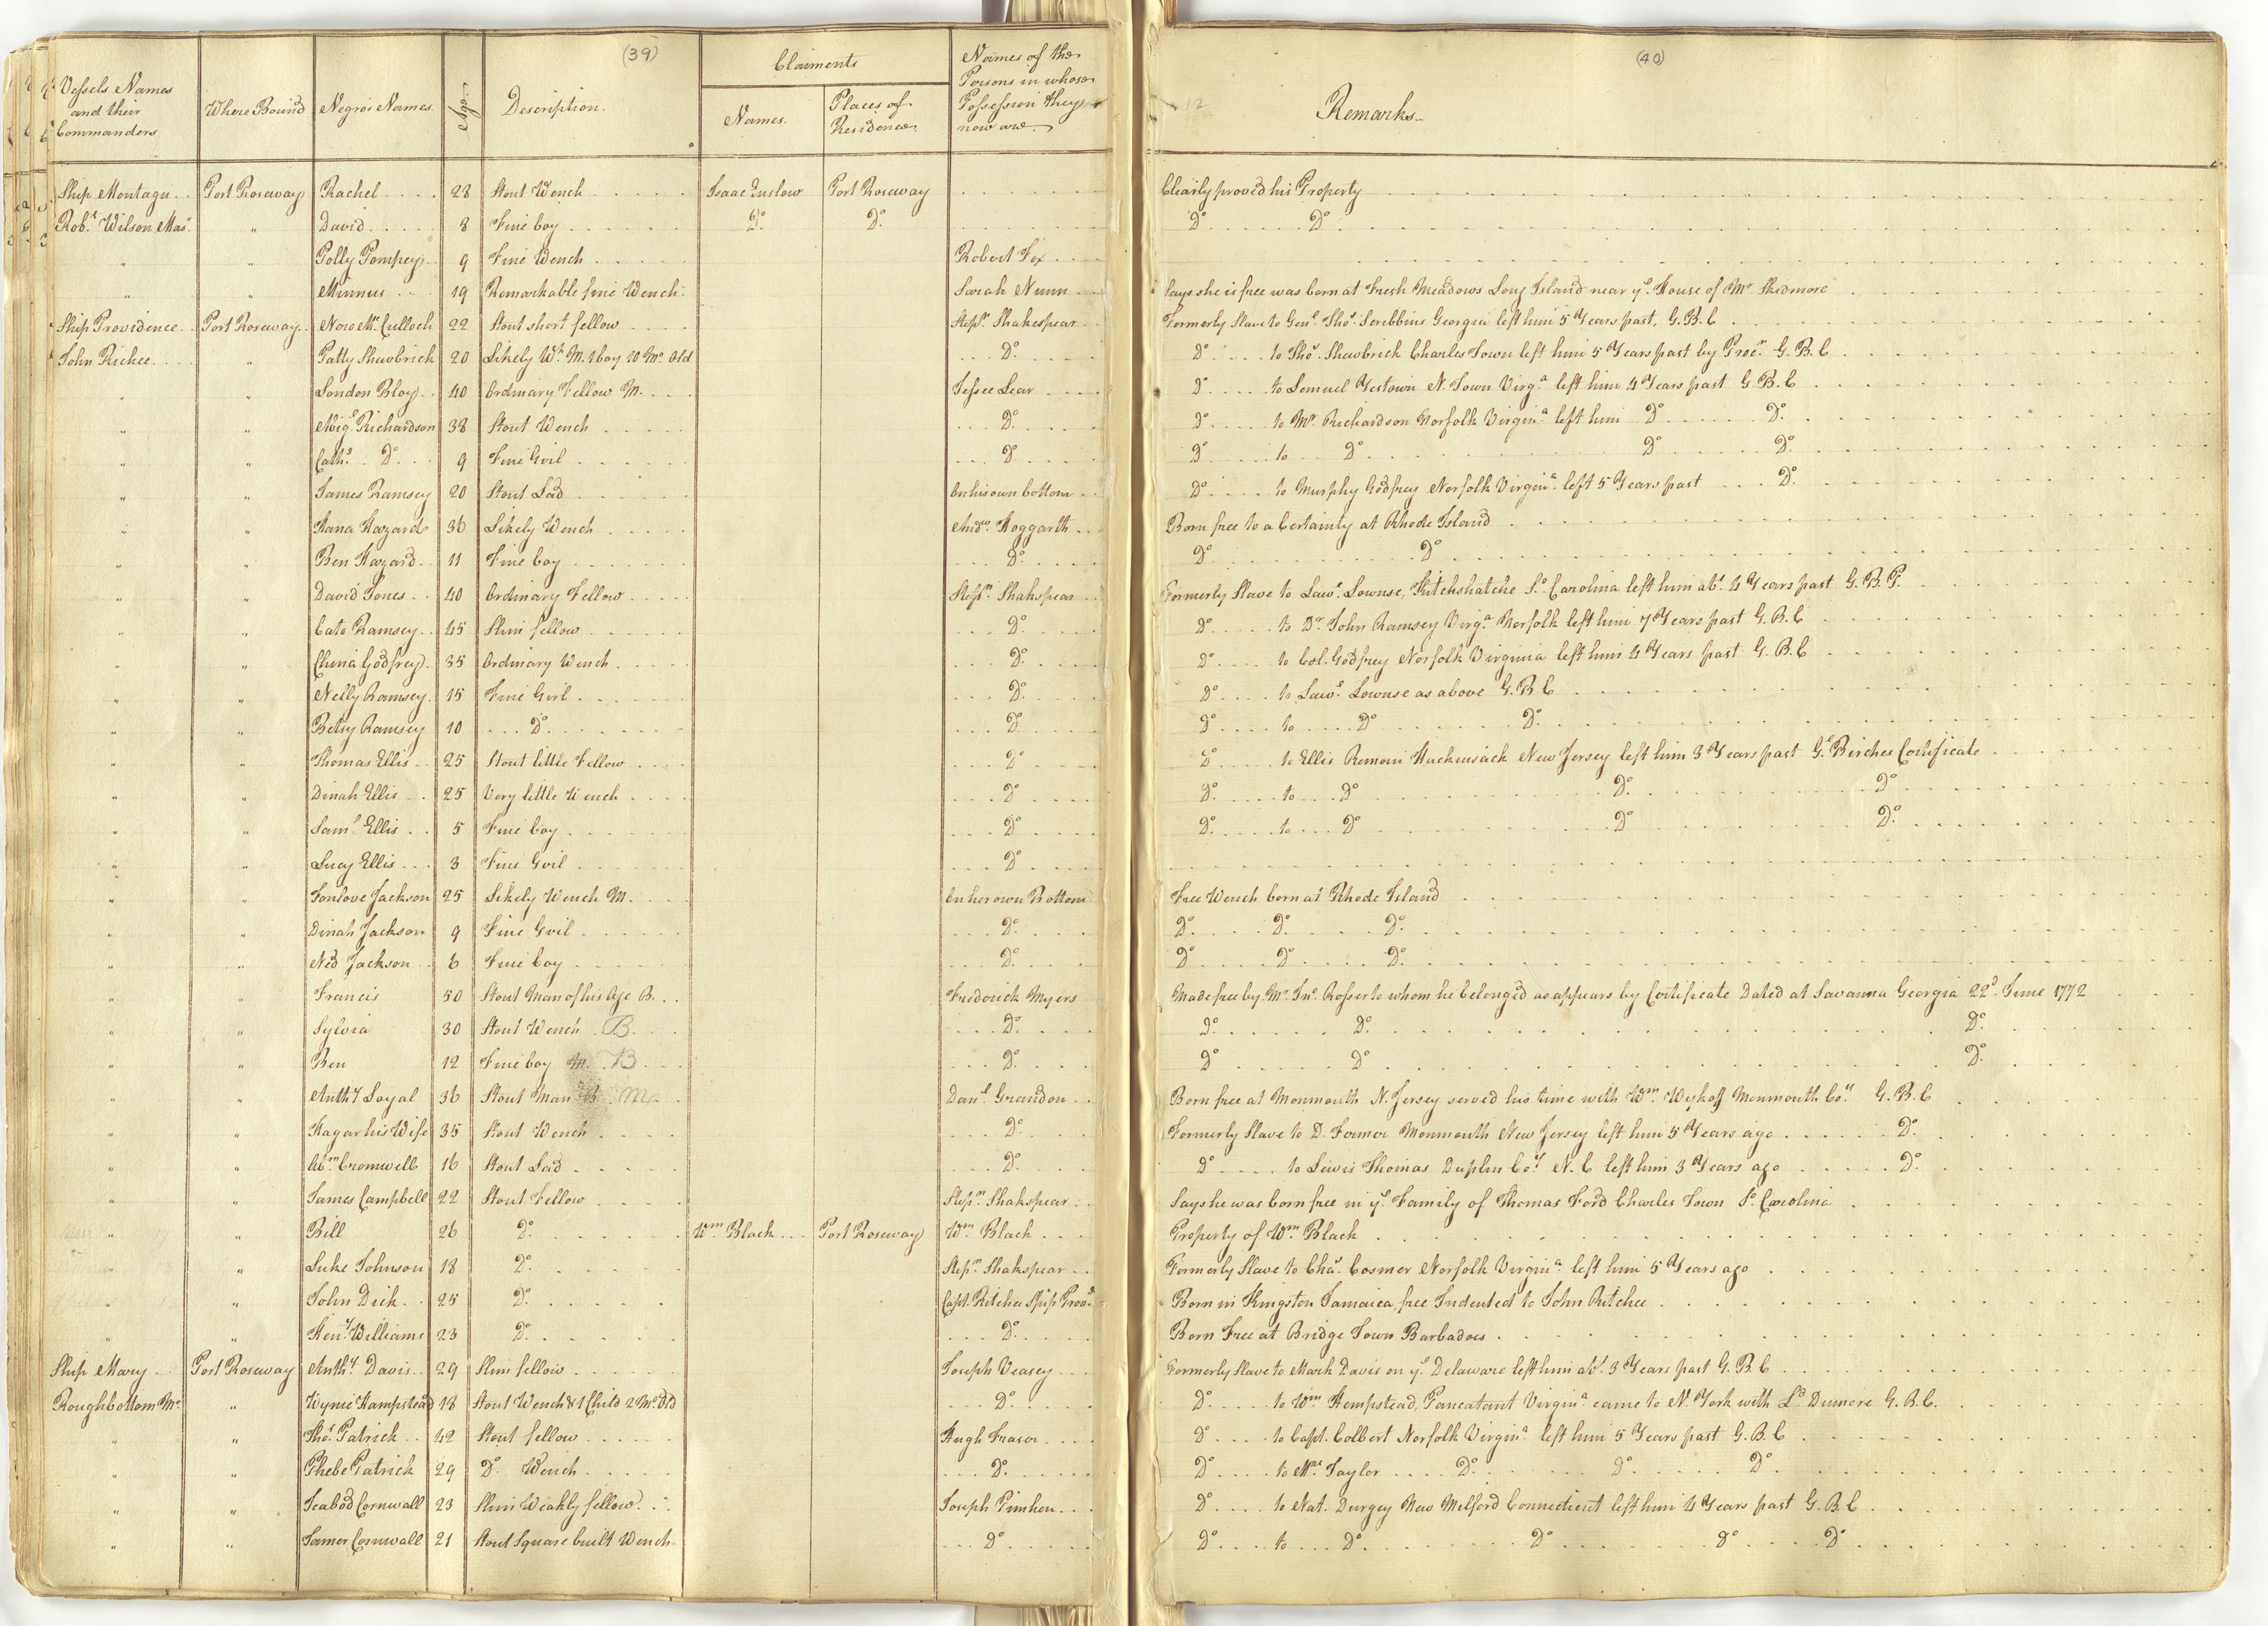 (39)
Vessels Names and their Commanders Where Bound Negroes Names. Age. Description. Claiments Names. Places of Residence. Names of the Persons in whose Possession they now are.
(40)
12
Remarks.
Ship Montagu Port Roseway Rachel 28 Stout Wench Isaac Enslow Port Roseway Clearly proved his Property
Robt. Wilson Mas. " David 8 Fine boy Do. Do. Do. Do.
" " Polly Pompey 9 Fine Wench Robert Fox
" " Minnus 19 Remarkable fine Wench Sarah Nunn Says she is free was born at Fresh Meadows Long Island near ye. House of Mr. Skidmore
Ship Providence Port Roseway Mc.Culloch 22 Stout short fellow Stepn. Shakespear Formerly Slave to Genl. Thos. Scribbins Georgia left him 5 Years past, G.B.C
John Richee " Patty Shewbrick 20 Likely Wh. M. 1 boy 10 Mo. Old Do. Do. to Thos. Shewbrick Charles Town left him 5 Years past by Procn. G.B.C
" " London Bloy 40 Ordinary Fellow M. Jessee Lear Do. to Lemuel N. Town Virga. left him 4 Years past G.B.C
" " Richardson 38 Stout Wench Do. Do. to Mr. Richardson Norfolk Virgina. left him Do. Do.
" " Cathe. Do. 9 Fine Girl Do. Do. to Do. Do. Do.
" " James Ramsey 20 Stout Lad On his own bottom Do. to Murphy Godfrey Norfolk Virgina. left 5 Years past Do.
" " Hana Hazard 36 Likely Wench Andw. Hoggarth Born free to a Certainty at Rhode Island
" " Ben Hazard 11 Fine boy Do. Do. Do.
" " David Jones 40 Ordinary Fellow Stepn. Shakspear Formerly Slave to Lawe. Lownse, So. Carolina left him abt. 4 Years past G.B.C.
" " Cato Ramsey 45 Slim fellow Do. Do. to Dr. John Ramsey Virga. Norfolk left him 7 Years past G.B.C
" " China Godfrey 35 Ordinary Wench Do. Do. to Col. Godfrey Norfolk Virginia left him 4 Years past G.B.C
" " Nelly Ramsey 15 Fine Girl Do. Do. to Lawe. Lownse as above G.B.C
" " Betsy Ramsey 10 Do. Do. Do. to Do. Do.
" " Thomas Ellis 25 Stout little Fellow Do. Do. to Ellis Hackensack New Jersey left him 3 Years past Gl. Birches Certificate
" " Dinah Ellis 25 Very little Wench Do. Do. to Do. Do. Do.
" " Saml. Ellis 5 Fine boy Do. Do. to Do. Do. Do.
" " Lucy Ellis 3 Fine Girl Do.
" " Fonlove Jackson 25 Likely Wench M. On her own Bottom Free Wench born at Rhode Island
" " Dinah Jackson 9 Fine Girl Do. Do. Do. Do.
" " Ned Jackson 6 Fine boy Do. Do. Do. Do.
" " Francis 50 Stout Man of his Age B. Frederick Myers Made free by Mr. Jno. Rosser to whom he belonged as appears by Certificate Dated at Savanna Georgia 22d. June 1772
" " Sylvia 30 Stout Wench B. Do. Do. Do. Do.
" " Ben 12 Fine boy M. B Do. Do. Do. Do.
" " Anthy Loyal 36 Stout Man B. M Danl. Grandon Born free at Monmouth N. Jersey served his time with Wm. Wykoff Monmouth Coy. G.B.C
" " Hagar his Wife 35 Stout Wench Do. Formerly Slave to D. Former Monmouth New Jersey left him 5 Years ago Do.
" " Abm. Cromwell 16 Stout Lad Do. Do. to Lewis Thomas Duplin Coy. N.C left him 3 Years ago Do.
" " James Campbell 22 Stout Fellow Stepn. Shakspear Says he was born free in ye. Family of Thomas Ford Charles Town So. Carolina
" " Bill 26 Do. Wm. Black Port Roseway Wm. Black Property of Wm. Black
" Luke Johnson 18 Do. Stepn. Shakspear Formerly Slave to Chas. Cosmer Norfolk Virgina. left him 5 Years ago
" John Dick 25 Do. Capt. Ritchee Ship Provd. Born in Kingston Jamaica free Indented to John Ritchee
" " Heny. Williams 23 Do. Do. Born Free at Bridge Town Barbadoes
Ship Mary Port Roseway Anthy. Davis 29 Slim fellow Joseph Veasey Formerly Slave to Mark Davis on ye. Delaware left him abt. 3 Years past G.B.C
Roughbottom Mr. " Wynie Hampstead 18 Stout Wench & 1 Child 2 Mo. Old Do. Do. to Wm. Hempstead, Pancatant Virgina. came to N. York with Ld. Dunmore G.B.C.
" " Thos. Patrick 42 Stout fellow Hugh Frasor Do. to Capt. Colbert Norfolk Virgina. left him 5 Years past G.B.C
" " Phebe Patrick 29 Do. Wench Do. Do. to Mrs. Taylor Do. Do. Do.
" " Jcabod Cornwall 23 Slim Weakly fellow Joseph Pinhen Do. to Nat. Durgey New Milford Connecticut left him 4 Years past G.B.C
" " Jamer Cornwall 21 Stout Square built Wench Do. Do. to Do. Do. Do. Do.